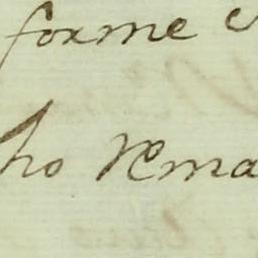 forme
ho rema